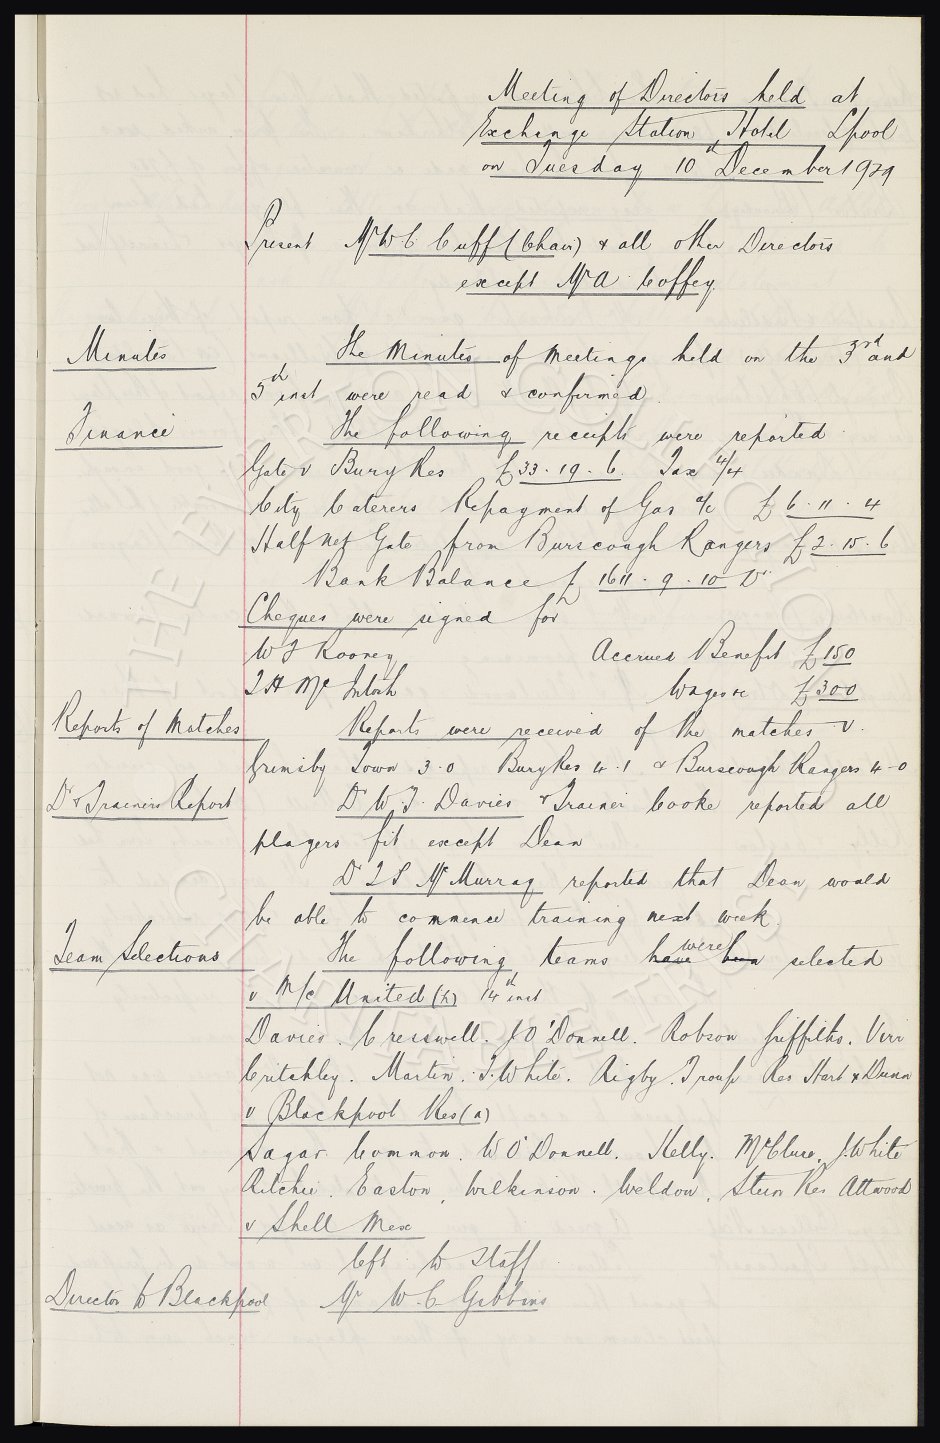 Meeting of Directors held at
Exchange Station Hotel L'pool
on Tuesday 10th December 1929
Present Mr W C Cuff (Chair) & all other Directors
except Mr A. Coffey.
Minutes The Minutes of meetings held on the 3rd and
5th inst were read & confirmed.
Finance The following receipts were reported
Gate v Bury Res £33.19.6. Tax 4/4
City Caterers Repayment of Gas a/c £6.11.4
Half Net Gate from Burscough Rangers £2.15.6
Bank Balance £1611.9.10 Dr
Cheques were signed for
W F Rooney Accrued Benefit £150
T H McIntosh Wages &c £300
Reports of Matches Reports were received of the matches v.
Grimsby Town 3-0 Bury Res 4-1 & Burscough Rangers 4-0
Dr & Trainers Report Dr W. J. Davies & Trainer Cooke reported all
players fit except Dean
Dr T S McMurray reported that Dean would
be able to commence training next week.
Team Selections The following teams have been were selected
v M/c United (h) 14th inst
Davies. Cresswell. J O'Donnell. Robson Griffiths. Virr
Critchley. Martin. T. White. Rigby. Troup Res Hart & Dunn
v Blackpool Res (a)
Sagar. Common. W O'Donnell. Kelly. McClure. J. White
Ritchie. Easton, Wilkinson. Weldon, Stein Res Attwood
v Shell Mex
left to Staff
Director to Blackpool Mr W. C. Gibbins
THE EVERTON COLLECTION
CHARITABLE TRUST